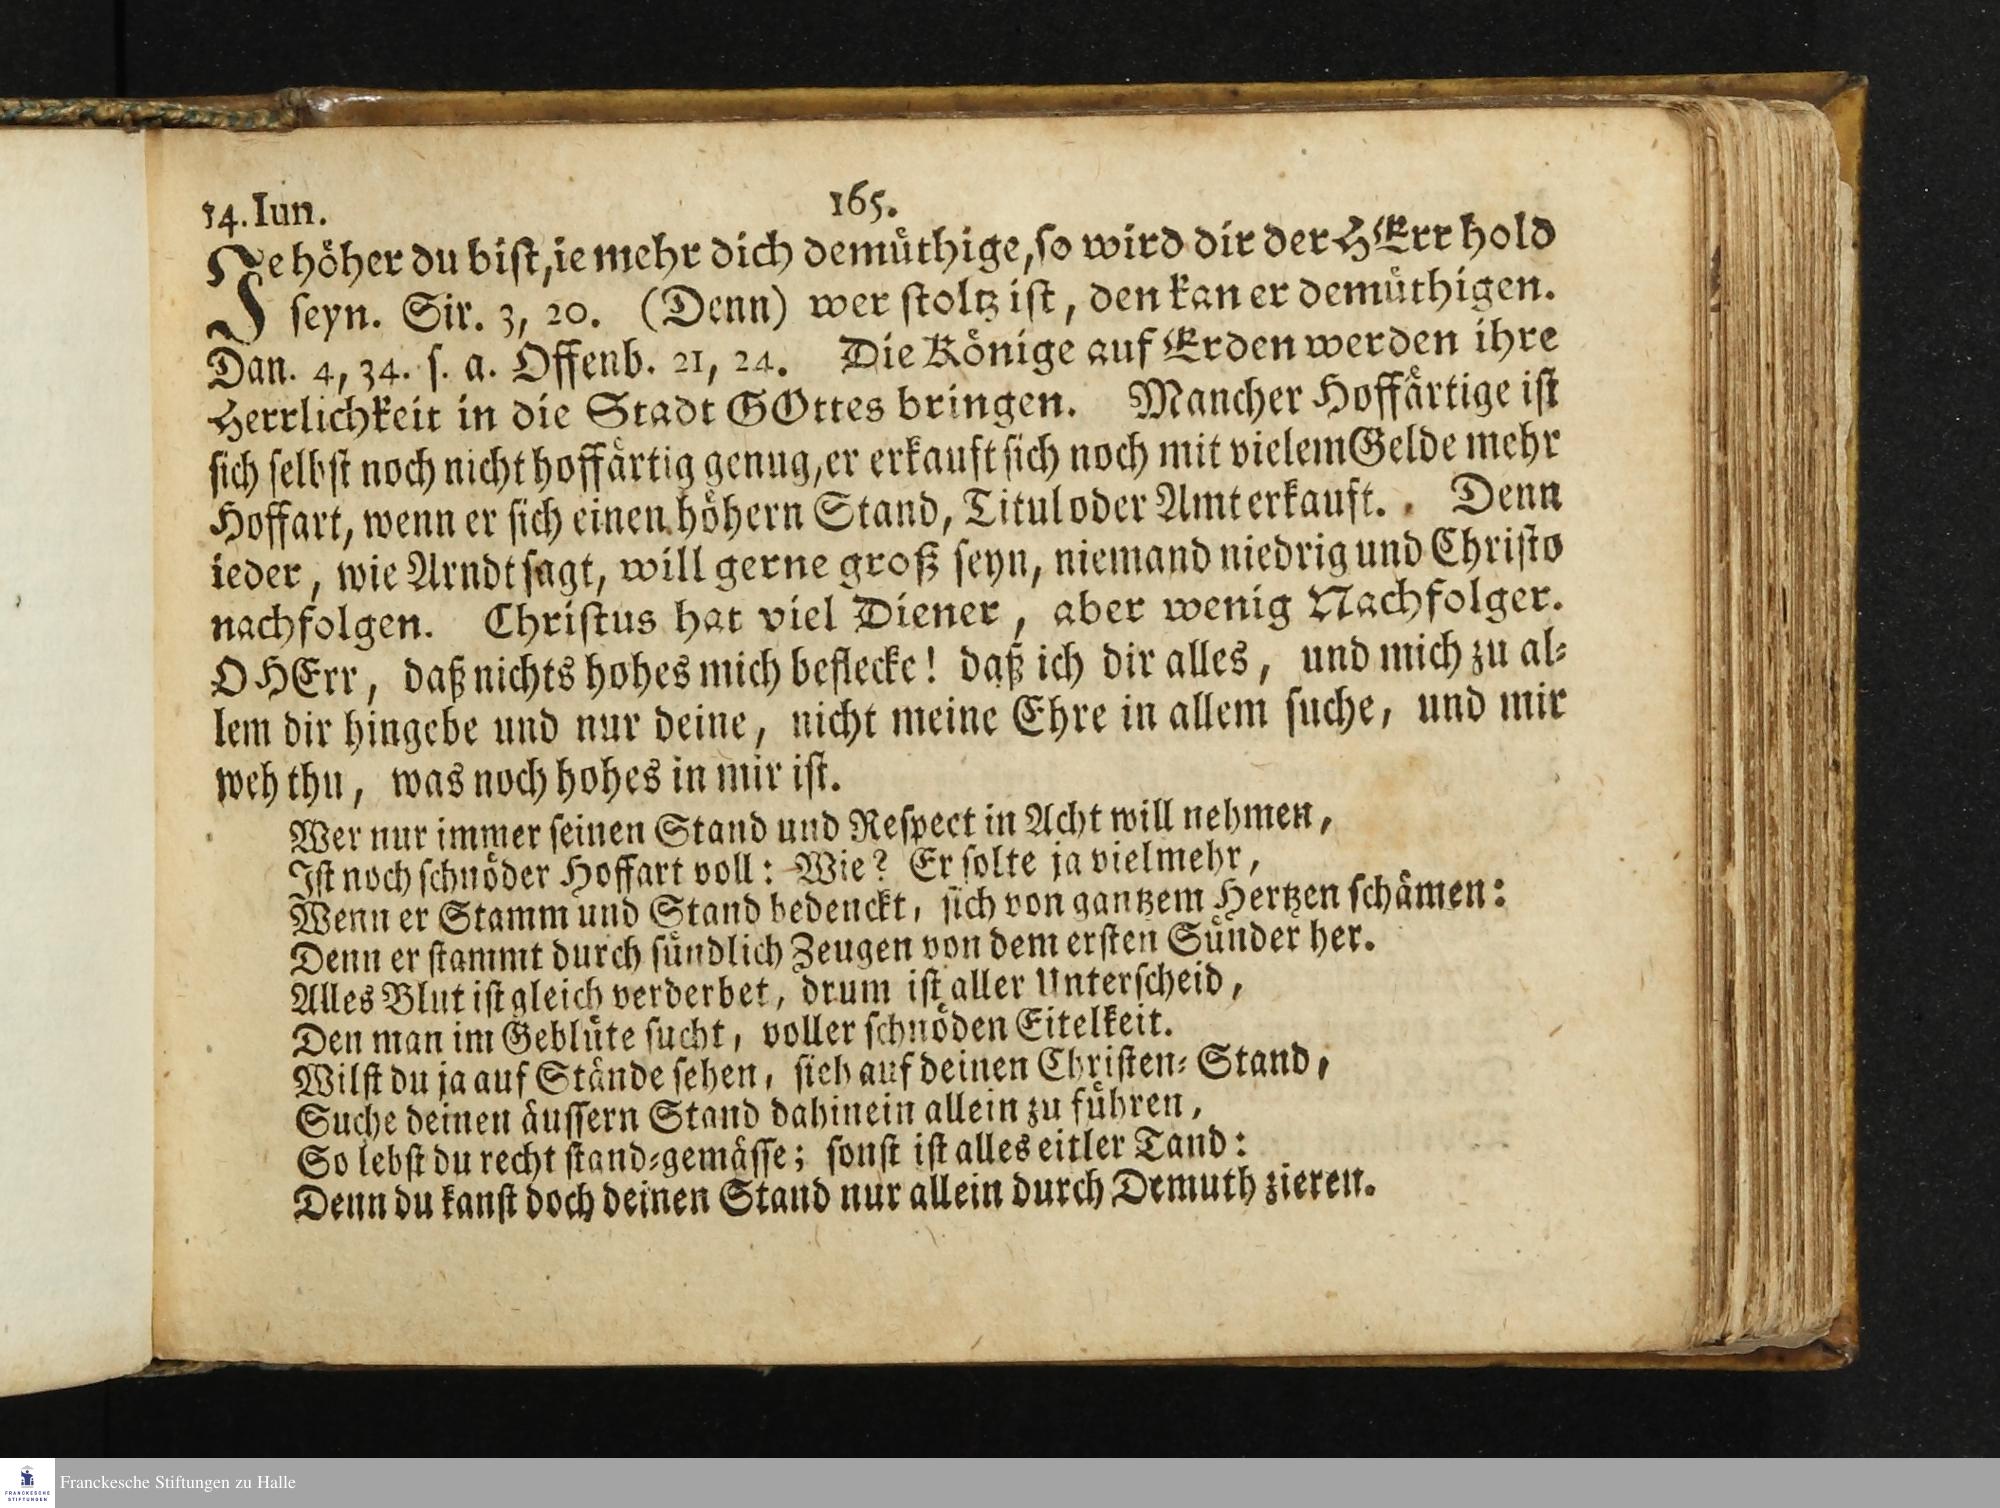 14. Iun.
165.
Je höher du bist, ie mehr dich demüthige, so wird dir der HErr hold
seyn. Sir. 3, 20. (Denn) wer stoltz ist, den kan er demüthigen.
Dan. 4, 34. s. a. Offenb. 21, 24. Die Könige auf Erden werden ihre
Herrlichkeit in die Stadt GOttes bringen. Mancher Hoffärtige ist
sich selbst noch nicht hoffärtig genug, er erkauft sich noch mit vielem Gelde mehr
Hoffart, wenn er sich einen höhern Stand, Titul oder Amt erkauft. Denn
ieder, wie Arndt sagt, will gerne groß seyn, niemand niedrig und Christo
nachfolgen. Christus hat viel Diener, aber wenig Nachfolger.
O HErr, daß nichts hohes mich beflecke! daß ich dir alles, und mich zu al-
lem dir hingebe und nur deine, nicht meine Ehre in allem suche, und mir
weh thu, was noch hohes in mir ist.
Wer nur immer seinen Stand und Respect in Acht will nehmen,
Ist noch schnöder Hoffart voll: Wie? Er solte ja vielmehr,
Wenn er Stamm und Stand bedenckt, sich von gantzem Hertzen schämen:
Denn er stammt durch sündlich Zeugen von dem ersten Sünder her.
Alles Blut ist gleich verderbet, drum ist aller Unterscheid,
Den man im Geblüte sucht, voller schnöden Eitelkeit.
Wilst du ja auf Stände sehen, sieh auf deinen Christen-Stand,
Suche deinen äussern Stand dahinein allein zu führen,
So lebst du recht stand-gemässe; sonst ist alles eitler Tand:
Denn du kanst doch deinen Stand nur allein durch Demuth zieren.
FRANCKESCHE
STIFTUNGEN
Franckesche Stiftungen zu Halle